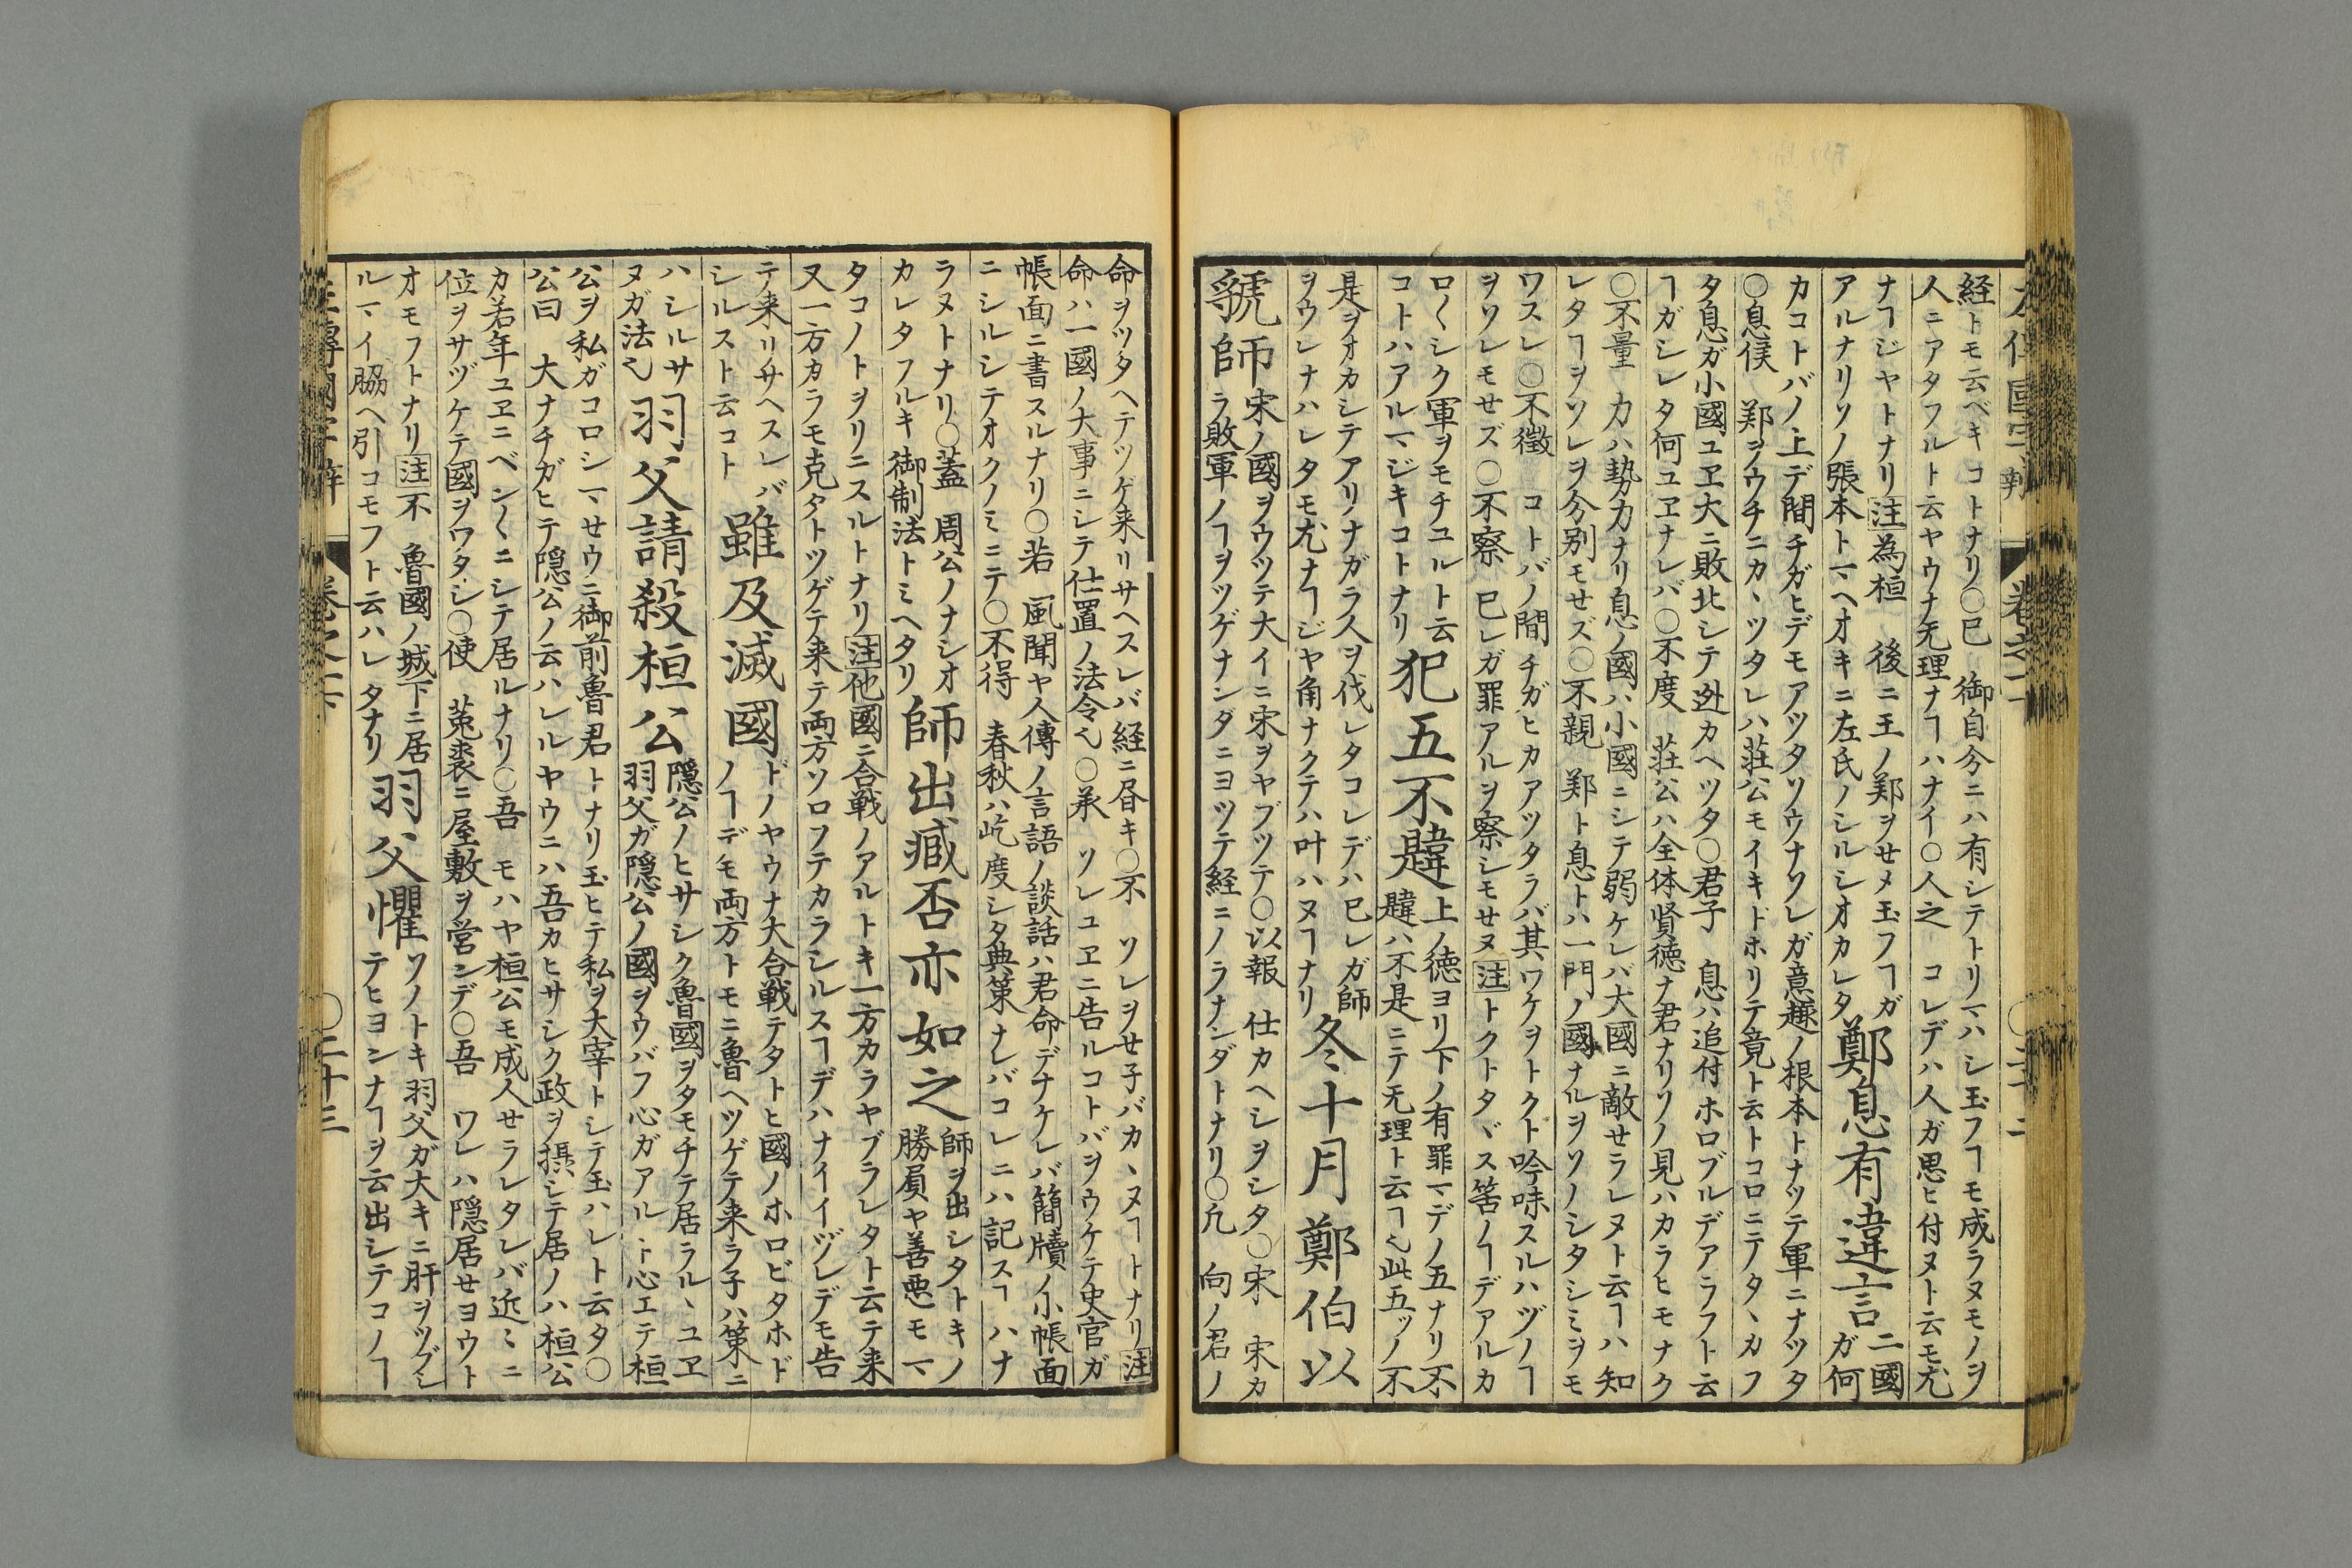 経トモ云ベキコトナリ○已 御自分ニハ有シテトリマハシ玉フヿモ成ラヌモノヲ
人ニアタフルト云ヤウナ无理ナヿハナイ○人之 コレデハ人ガ思ヒ付ヌト云モ尤
ナヿジヤトナリ注為桓 後ニ王ノ鄭ヲせメ玉フヿガ
アルナリソノ張本トマヘオキニ左氏ノシルシオカレタ
鄭息有違言
二國
ガ何
カコトバノ上デ間チガヒデモアツタリウナソレガ意趣ノ根本トナツテ軍ニナツタ
○息侯 鄭ヲウチニカヽツタレハ荘公モイキドホリテ竟ト云トコロニテタヽカフ
タ息ガ小國ユヱ大ニ敗北シテ迯カヘツタ○君子 息ハ追付ホロブルデアラフト云
ヿガシレタ何ユヱナレバ○不度 荘公ハ全体賢徳ナ君ナリソノ見ハカラヒモナク
○不量 力ハ勢力ナリ息ノ國ハ小國ニシテ弱ケレバ大國ニ敵せラレヌト云ヿハ知
レタヿヲソレヲ分別モせズ○不親 鄭ト息トハ一門ノ國ナルヲソノシタシミヲモ
ワスレ○不徴 コトバノ間チガヒカアツタラバ其ワケヲトクト吟味スルハヅノヿ
ヲソレモせズ○不察 已レガ罪アルヲ察シモせヌ注トクトタヾス筈ノヿデアルカ
ロ〱シク軍ヲモチユルト云
コトハアルマジキコトナリ
犯五不韙
上ノ徳ヨリ下ノ有罪マデノ五ナリ不
韙ハ不是ニテ无理ト云ヿ也此五ツノ不
是ヲオカシテアリナガラ人ヲ伐レタコレデハ已レガ師
ヲウレナハレタモ尤ナヿジヤ角ナクテハ叶ハヌヿナリ
冬十月鄭伯以
虢師
宋ノ國ヲウツテ大イニ宋ヲヤブツテ○以報 仕カヘシヲシタ○宋 宋カ
ラ敗軍ノヿヲツゲナンダニヨツテ経ニノラナンダトナリ○凡 向ノ君ノ
命ヲツタヘテツゲ来リサヘスレバ経ニ昏キ○不 ソレヲせ子バカヽヌヿトナリ注
命ハ一國ノ大事ニシテ仕置ノ法令也○承 ソレユヱニ告ルコトバヲウケテ史官ガ
帳面ニ書スルナリ○若 風聞ヤ人傳ノ言語ノ談話ハ君命デナケレバ簡牘ノ小帳面
ニシルシテオクノミニテ○不得 春秋ハ屹度シタ典策ナレバコレニハ記スヿハナ
ラヌトナリ○蓋 周公ノナシオ
カレタフルキ御制法トミヘタリ
師出臧否亦如之
師ヲ出シタトキノ
勝負ヤ善悪モマ
タコノトヲリニスルトナリ注他國ニ合戦ノアルトキ一方カラヤブラレタト云テ来
又一方カラモ克タトツゲテ来テ両方ソロフテカラシルスヿデハナイイヅレデモ告
テ来リサヘスレバ
シルスト云コト
雖及滅國
ドノヤウナ大合戦テタトヒ國ノホロビタホド
ノヿデモ両方トモニ魯ヘツゲテ来ラ子ハ策ニ
ハシルサ
ヌガ法也
羽父請殺桓公
隠公ノヒサシク魯國ヲタモチテ居ラルヽユヱ
羽父ガ隠公ノ國ヲウバフ心ガアルト心エテ桓
公ヲ私ガコロシマせウニ御前魯君トナリ玉ヒテ私ヲ大宰トシテ玉ハレト云タ○
公曰 大ナチガヒテ隠公ノ云ハレルヤウニハ吾カヒサシク政ヲ摂シテ居ノハ桓公
カ若年ユヱニベン〱ニシテ居ルナリ○吾 モハヤ桓公モ成人せラレタレバ近〻ニ
位ヲサヅケテ國ヲワタシ○使 菟裘ニ屋敷ヲ営ンデ○吾 ワレハ隠居せヨウト
オモフトナリ注不 魯國ノ城下ニ居
ルマイ脇ヘ引コモフト云ハレタナリ
羽父懼
ソノトキ羽父ガ大キニ肝ヲツブシ
テヒヨンナヿヲ云出シテコノヿ
○二十三